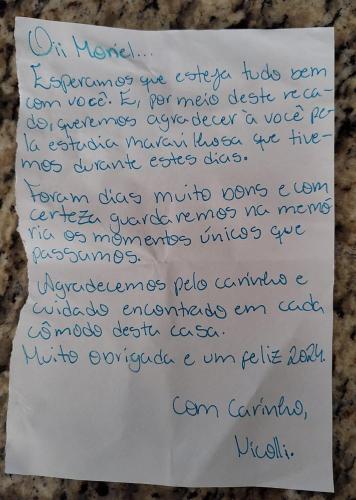 Oii Moriel...
Esperamos que esteja tudo bem
com você. E, por meio deste reca-
do, queremos agradecer à você pe-
la estadia maravilhosa que tive-
mos durante estes dias.
Foram dias muito bons e com
certeza guardaremos na memó
ria os momentos únicos que
passamos.
Agradecemos pelo carinho e
cuidado encontrado em cada
cômodo desta casa.
Muito obrigada e um feliz 2024.
Com carinho,
Nicolli.